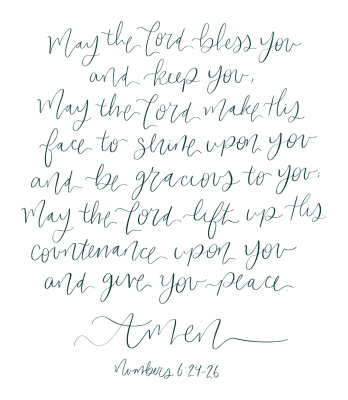 May the Lord bless you
and keep you;
May the Lord make His
face to shine upon you
and be gracious to you;
May the Lord lift up His
countenance upon you
and give you peace.
Amen
Numbers 6:24-26